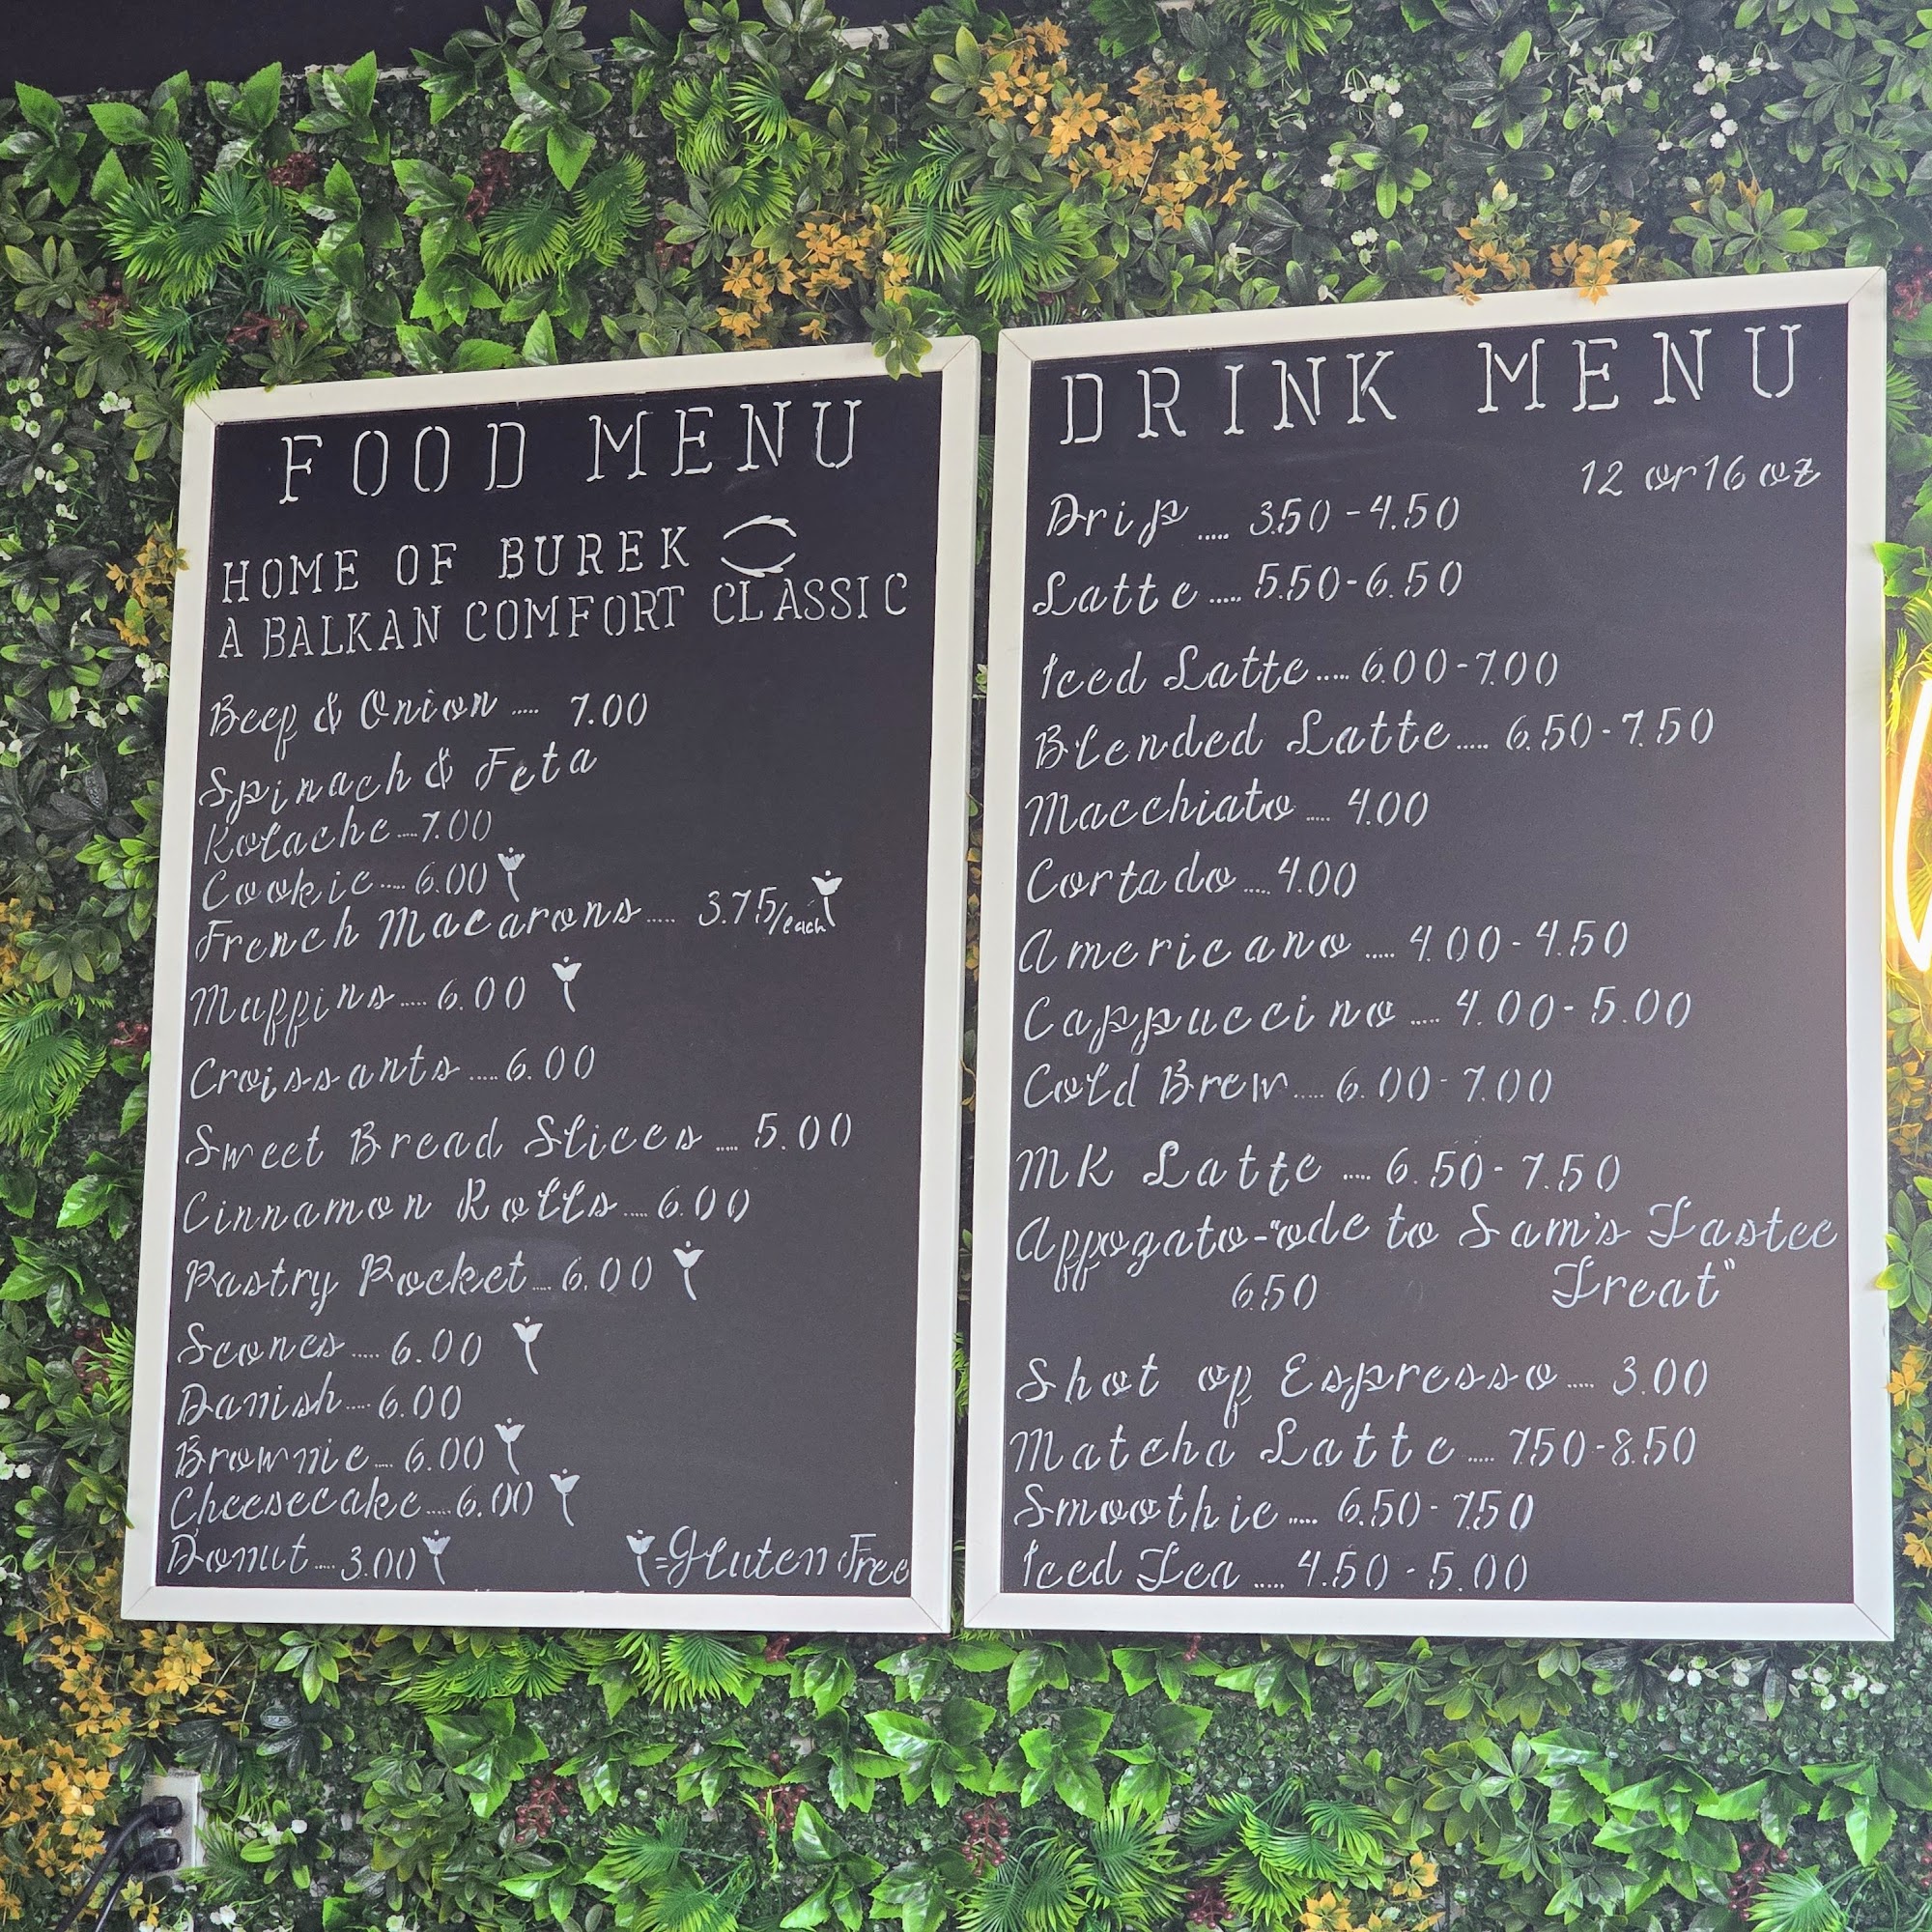 FOOD MENU
HOME OF BUREK
A BALKAN COMFORT CLASSIC
Beef & Onion ..... 7.00
Spinach & Feta
Kolache ..... 7.00
Cookie ..... 6.00
French Macarons ..... 3.75/each
Muffins ..... 6.00
Croissants ..... 6.00
Sweet Bread Slices ..... 5.00
Cinnamon Rolls ..... 6.00
Pastry Pocket ..... 6.00
Scones ..... 6.00
Danish ..... 6.00
Brownie ..... 6.00
Cheesecake ..... 6.00
Donut ..... 3.00
=Gluten Free
DRINK MENU
12 or 16 oz
Drip ..... 3.50-4.50
Latte ..... 5.50-6.50
Iced Latte ..... 6.00-7.00
Blended Latte ..... 6.50-7.50
Macchiato ..... 4.00
Cortado ..... 4.00
Americano ..... 4.00-4.50
Cappuccino ..... 4.00-5.00
Cold Brew ..... 6.00-7.00
MK Latte ..... 6.50-7.50
Affogato-"ode to Sam's Tastee
6.50 Treat"
Shot of Espresso ..... 3.00
Matcha Latte ..... 7.50-8.50
Smoothie ..... 6.50-7.50
Iced Tea ..... 4.50-5.00